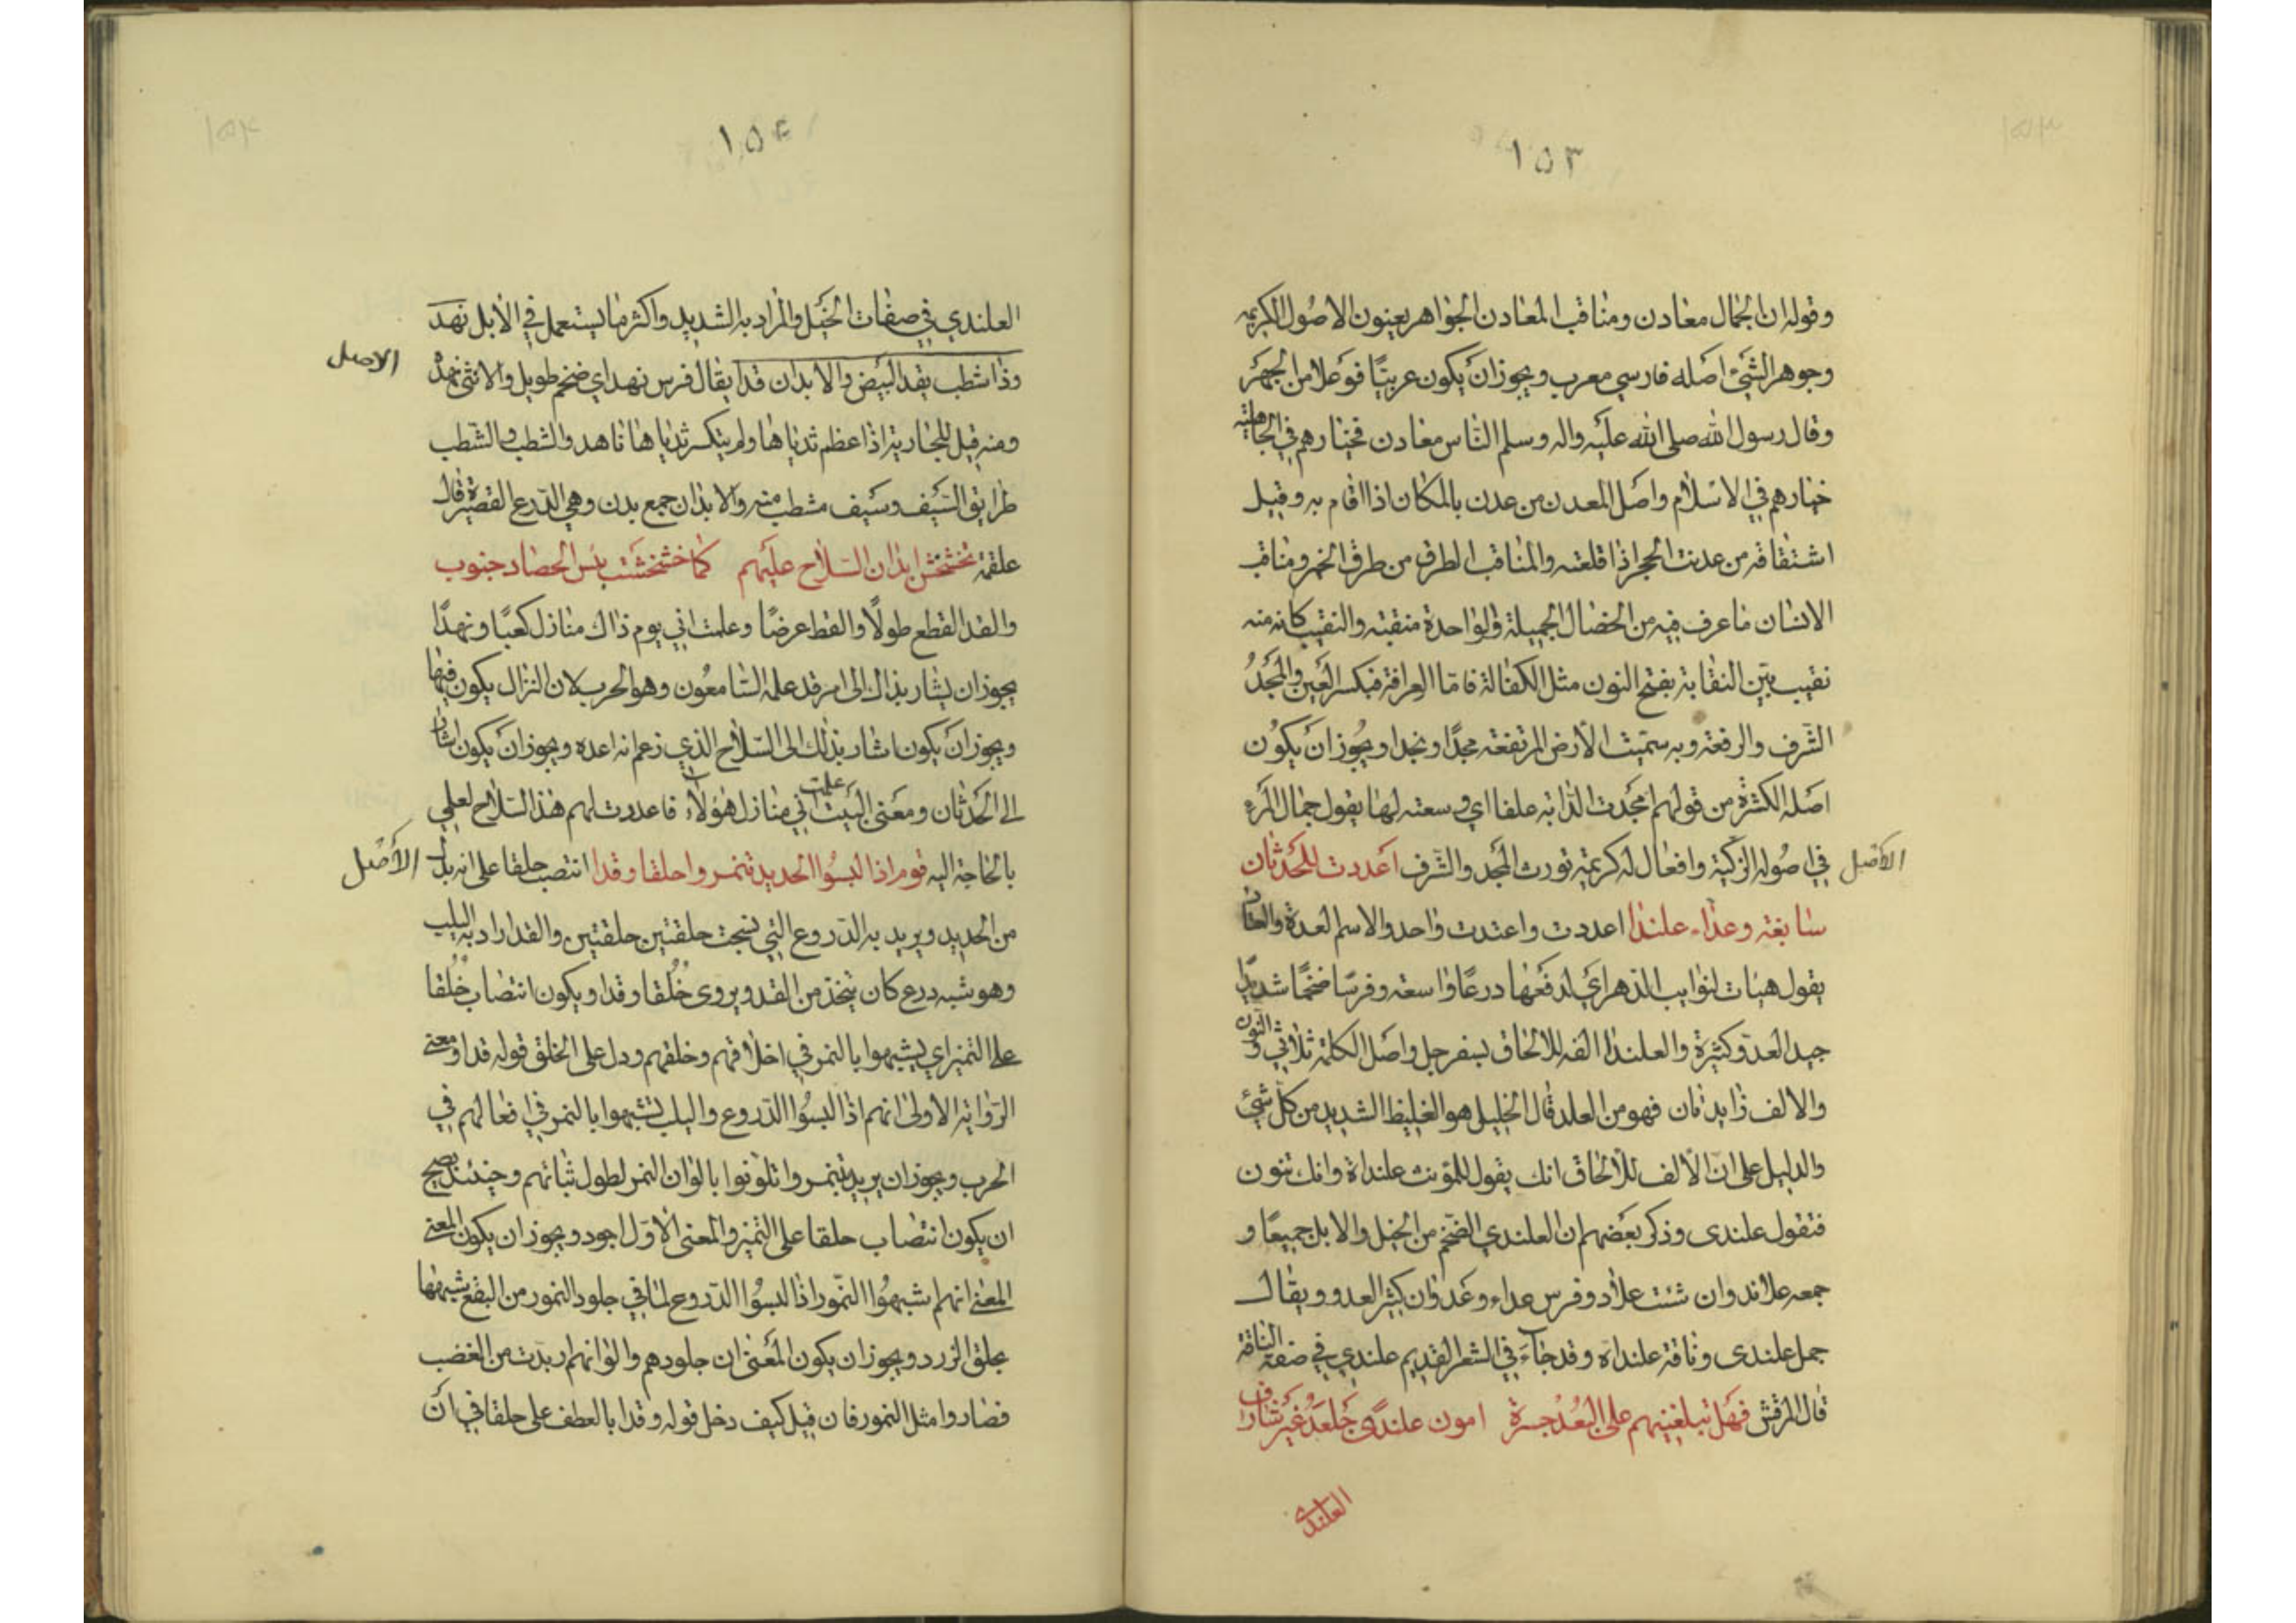 ١٥٣
وقوله ان الجمال معادن ومناقب المعادن الجواهر يعنون الاصول الكريمه
وجوهر الشئ اصله فارسي معرب ويجوز ان يكون عربيّا فوعلا من الجهر
وقال رسول الله صلى الله عليه واله وسلم الناس معادن فخيارهم في الجاهلية
خيارهم في الاسلام واصل المعدن من عدن بالمكان اذا اقام به وقيل
اشتقاقه من عدنت الحجر اذا قلعته والمناقب الطرق من طرق الخير ومناقب
الانسان ما عرف فيه من الخصال الجميلة والواحدة منقبة والنقيب كانه منه
نقيب بيّن النقابة بفتح النون مثل الكفالة فامّا العرافة فبكسر العين والمجدُ
الشّرف والرفعة وبه سمّيت الأرض المرتفعة مجدًا ونجدا ويجُوز ان يكوُن
اصله الكثرة من قولهم امجدت الدّابه علفا اي وسعته لها يقول جمال المرء
الاصل
في اصُوله الزكيّة وافعال له كريمة تورث المجد والشّرف اعددت للحدثان
سابغة وعدّاء علندا اعددت واعتدت واحد والاسم العدة والعتاد
يقول هيئات لنوايب الدّهر اي لدفعها درعًا واسعة وفرسًا ضخمًا شديدًا
جيد العدو كثيرة والعلندا الفه للالحاق بسفرجل واصل الكلمة ثلاثي والنون
والالف زايدتان فهو من العلد قال الخليل هو الغليظ الشديد من كل شئ
والدليل على انّ الألف للألحاق انك يقول للمؤنث علنداة وانك تنون
فتقول علندى وذكر بعضهم ان العلندي الضّخم من الخيل والابل جميعًا و
جمعه علاند وان شئت علاد وفرس عداء وعدوان كثير العدو ويقال
جمل علندى وناقة علنداة وقد جاء في الشعر القديم علندي في صفة الناقة
قال المرقش فهل تبلغينهم على البُعْد جسرة امون علندًى جَلعَدٌ غير شارف
العلندي
١٥٤
العلندي في صفات الخيل والمراد به الشديد واكثر ما يستعمل في الأبل نهد
الاصل
وذا شطب يقد البيض والابدان قدا يقال فرس نهد اي ضخم طويل والانثى نهدة
ومنه قيل للجارية اذا عظم ثدياها ولم يتكسر ثدياها ناهد والشطب والشّطب
طرايق السّيف وسيف مشطب منه والابدان جمع بدن وهي الدّرع القصيرة قال
علقمة تخشخش ابدان السّلاح عليهم كما خشخشت يبس الحصاد جنوب
والقد القطع طولًا والقط عرضًا وعلمت اني يوم ذاك منازل كعبًا ونهدًا
يجوز ان يشار بذاك الى امر قد علمه السّامعُون وهو الحرب لان النزال يكون فيها
ويجوز ان يكون اشار بذلك الى السّلاح الذي زعم انه اعده ويجوز ان يكون اشار
الى الحدثان ومعنى البيت علمت اني منازل هؤلاء فاعددت لهم هذا السّلاح لعلمي
الأصل
بالحاجة اليه قوم اذا لبسُوا الحديد تنمروا حلقا وقدا انتصب حلقا على انه بدل
من الحديد ويريد به الدّروع التي نسجت حلقتين حلقتين والقد اراد به اليلب
وهو شبه درع كان يتخذ من القد ويروى خُلُقا وقدا ويكون انتصاب خُلُقا
على التميز اي يشبهوا بالنمر في اخلاقهم وخلقهم ودل على الخلق قوله قدا ومعنى
الرّواية الاولى انهم اذا لبسُوا الدّروع واليلب تشبهوا بالنمر في افعالهم في
الحرب ويجوز ان يريد بتنمروا تلوّنوا بالوان النمر لطول ثباتهم وحينئذ يصح
ان يكون انتصاب حلقا على التميز والمعنى الاوّل اجود ويجوز ان يكون المعنى
المعنى انهم شبهُوا النّمور اذا لبسُوا الدّروع لما في جلود النمور من البقع شبهها
بحلق الزرد ويجوز ان يكون المعنى ان جلودهم والوانهم اربدّت من الغضب
فصاروا مثل النمور فان قيل كيف دخل قوله وقدا بالعطف على حلقا في ان